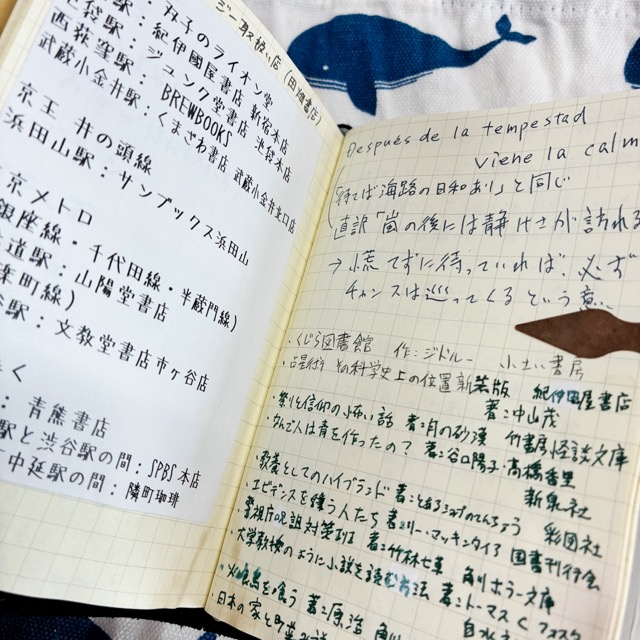 駅：双子のライオン堂
駅：紀伊國屋書店 新宿本店
池袋駅：ジュンク堂書店 池袋本店
西荻窪駅：BREWBOOKS
武蔵小金井駅：くまざわ書店 武蔵小金井北口店
京王 井の頭線
浜田山駅：サンブックス浜田山
京メトロ
銀座線・千代田線・半蔵門線）
道駅：山陽堂書店
楽町線）
谷駅：文教堂書店市ヶ谷店
く
：青熊書店
駅と渋谷駅の間：SPBS本店
中延駅の間：隣町珈琲
Después de la tempestad
viene la calm
「待てば海路の日和あり」と同じ
直訳「嵐の後には静けさが訪れる
→慌てずに待っていれば、必ず
チャンスは巡ってくるという意
・くじら図書館 作：ジドルー 小さい書房
・占星術 その科学史上の位置 新装版 紀伊國屋書店
著：中山茂
・祭りと信仰の怖い話 著：月の砂漠 竹書房怪談文庫
・なんで人は青を作ったの？ 著：谷口陽子・高橋香里
新泉社
・教養としてのハイブランド 著：とあるショップのてんちょう 彩図社
・エビデンスを嫌う人たち 著：リー・マッキンタイア 国書刊行会
・警視庁呪詛対策班 著：竹林七草 角川ホラー文庫
・大学教授のように小説を読む方法 著：トーマス・C・フォスター
・火喰鳥を喰う 著：原浩 角川
・日本の家と町並み